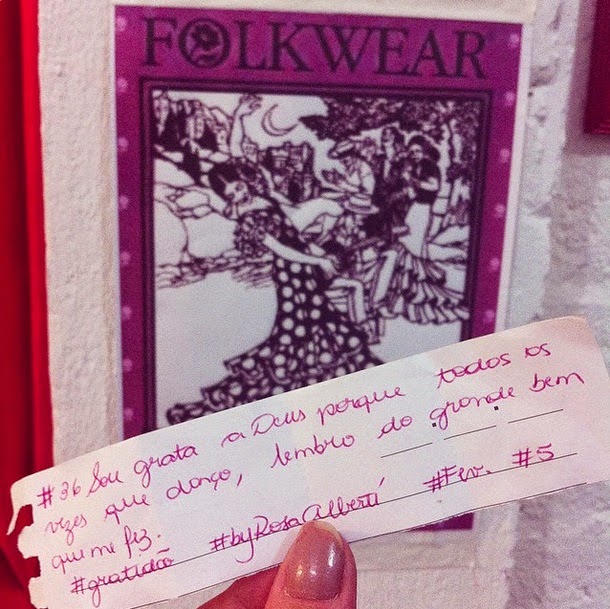 FOLKWEAR
#36 Sou grata a Deus porque todos as
vezes que danço, lembro do grande bem
que me fiz.
#gratidão #byRosaAlbertí #Fev. #5